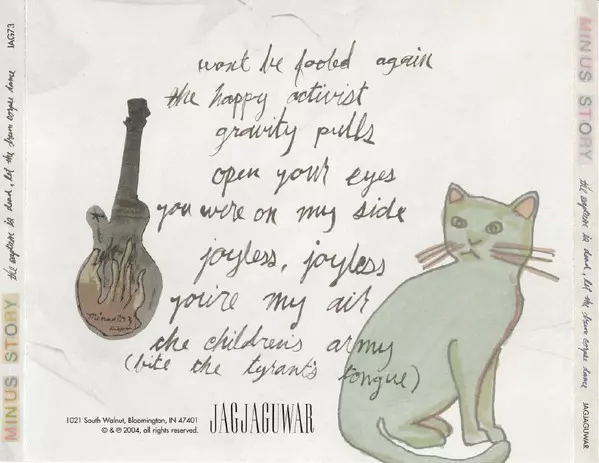 MINUS STORY
the captain is dead, let the drum corpse dance
JAG73
wont be fooled again
the happy activist
gravity pulls
open your eyes
you were on my side
joyless, joyless
you're my air
the children's army
(bite the tyrant's tongue)
1021 South Walnut, Bloomington, IN 47401
© & ℗ 2004, all rights reserved.
JAGJAGUWAR
MINUS STORY
the captain is dead, let the drum corpse dance
JAGJAGUWAR